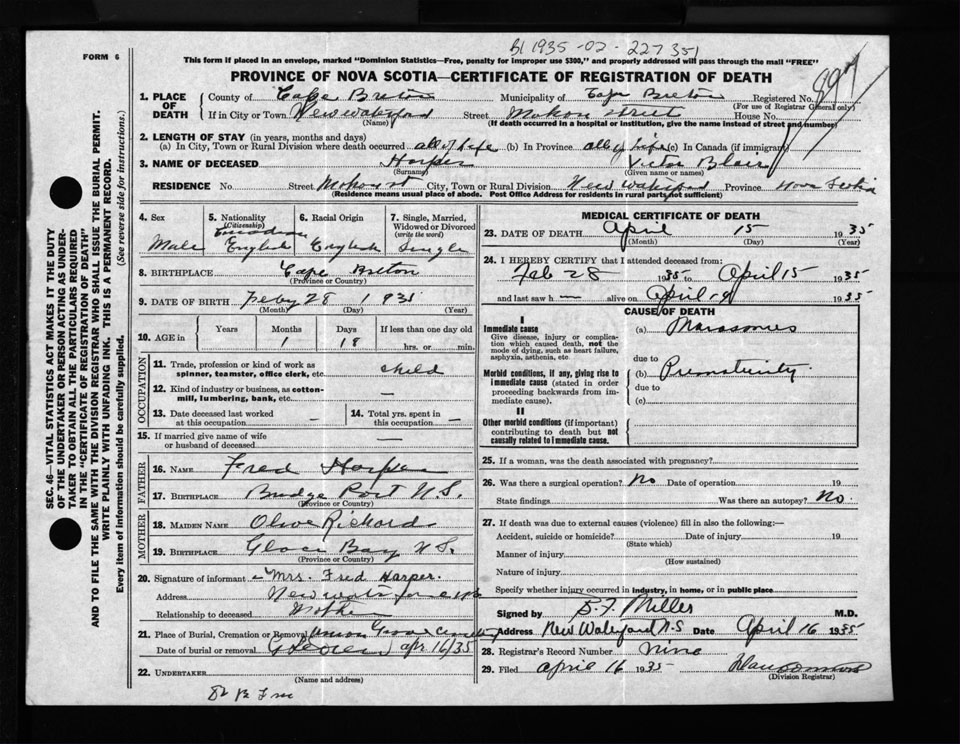 B1 1935-02-227351
FORM 6
This form if placed in an envelope, marked "Dominion Statistics—Free, penalty for improper use $300," and properly addressed will pass through the mail "FREE"
PROVINCE OF NOVA SCOTIA—CERTIFICATE OF REGISTRATION OF DEATH
897
1. PLACE OF DEATH
County of Cape Breton Municipality of Cape Breton Registered No.
(For use of Registrar General only)
If in City or Town New Waterford Street street House No.
(Name) (If death occurred in a hospital or institution, give the name instead of street and number)
2. LENGTH OF STAY (in years, months and days)
(a) In City, Town or Rural Division where death occurred all of life (b) In Province all of life (c) In Canada (if immigrant)
3. NAME OF DECEASED Harper Victor Blair
(Surname) (Given name or names)
RESIDENCE No. Street City, Town or Rural Division New Waterford Province Nova Scotia
(Residence means usual place of abode. Post Office Address for residents in rural parts not sufficient)
4. Sex
5. Nationality (Citizenship)
6. Racial Origin
7. Single, Married, Widowed or Divorced (write the word)
Canadian
Male English English Single
8. BIRTHPLACE Cape Breton
(Province or Country)
9. DATE OF BIRTH Feby 28 1935
(Month) (Day) (Year)
10. AGE in Years Months Days If less than one day old
1 18 hrs. or min.
OCCUPATION
11. Trade, profession or kind of work as spinner, teamster, office clerk, etc. child
12. Kind of industry or business, as cotton-mill, lumbering, bank, etc. —
13. Date deceased last worked at this occupation —
14. Total yrs. spent in this occupation —
15. If married give name of wife or husband of deceased —
FATHER
16. NAME Fred Harper
17. BIRTHPLACE Bridge Port N.S.
(Province or Country)
MOTHER
18. MAIDEN NAME Olive Richards
19. BIRTHPLACE Glace Bay N.S.
(Province or Country)
20. Signature of informant - Mrs. Fred Harper.
Address New Waterford
Relationship to deceased Mother
21. Place of Burial, Cremation or Removal Union Grove Cemetery
Date of burial or removal apr 16/35
22. UNDERTAKER
(Name and address)
MEDICAL CERTIFICATE OF DEATH
23. DATE OF DEATH April 15 1935
(Month) (Day) (Year)
24. I HEREBY CERTIFY that I attended deceased from:
Feb 28 1935 to April 15 1935
and last saw h — alive on April 1935
CAUSE OF DEATH
I
Immediate cause
Give disease, injury or complication which caused death, not the mode of dying, such as heart failure, asphyxia, asthenia, etc.
(a) Marasmus
due to
Morbid conditions, if any, giving rise to immediate cause (stated in order proceeding backwards from immediate cause).
(b) Prematurity
due to
(c)
II
Other morbid conditions (if important) contributing to death but not causally related to immediate cause.
25. If a woman, was the death associated with pregnancy?
26. Was there a surgical operation? No Date of operation 19
State findings Was there an autopsy? No
27. If death was due to external causes (violence) fill in also the following:—
Accident, suicide or homicide? Date of injury 19
(State which)
Manner of injury
(How sustained)
Nature of injury
Specify whether injury occurred in industry, in home, or in public place
Signed by B.F. Miller M.D.
Address New Waterford N.S Date April 16 1935
28. Registrar's Record Number nine
29. Filed April 16 1935
(Division Registrar)
SEC. 46—VITAL STATISTICS ACT MAKES IT THE DUTY
OF THE UNDERTAKER OR PERSON ACTING AS UNDER-
TAKER TO OBTAIN ALL THE PARTICULARS REQUIRED
IN THE "CERTIFICATE OF REGISTRATION OF DEATH"
AND TO FILE THE SAME WITH THE DIVISION REGISTRAR WHO SHALL ISSUE THE BURIAL PERMIT.
WRITE PLAINLY WITH UNFADING INK. THIS IS A PERMANENT RECORD.
Every item of information should be carefully supplied. (See reverse side for instructions.)